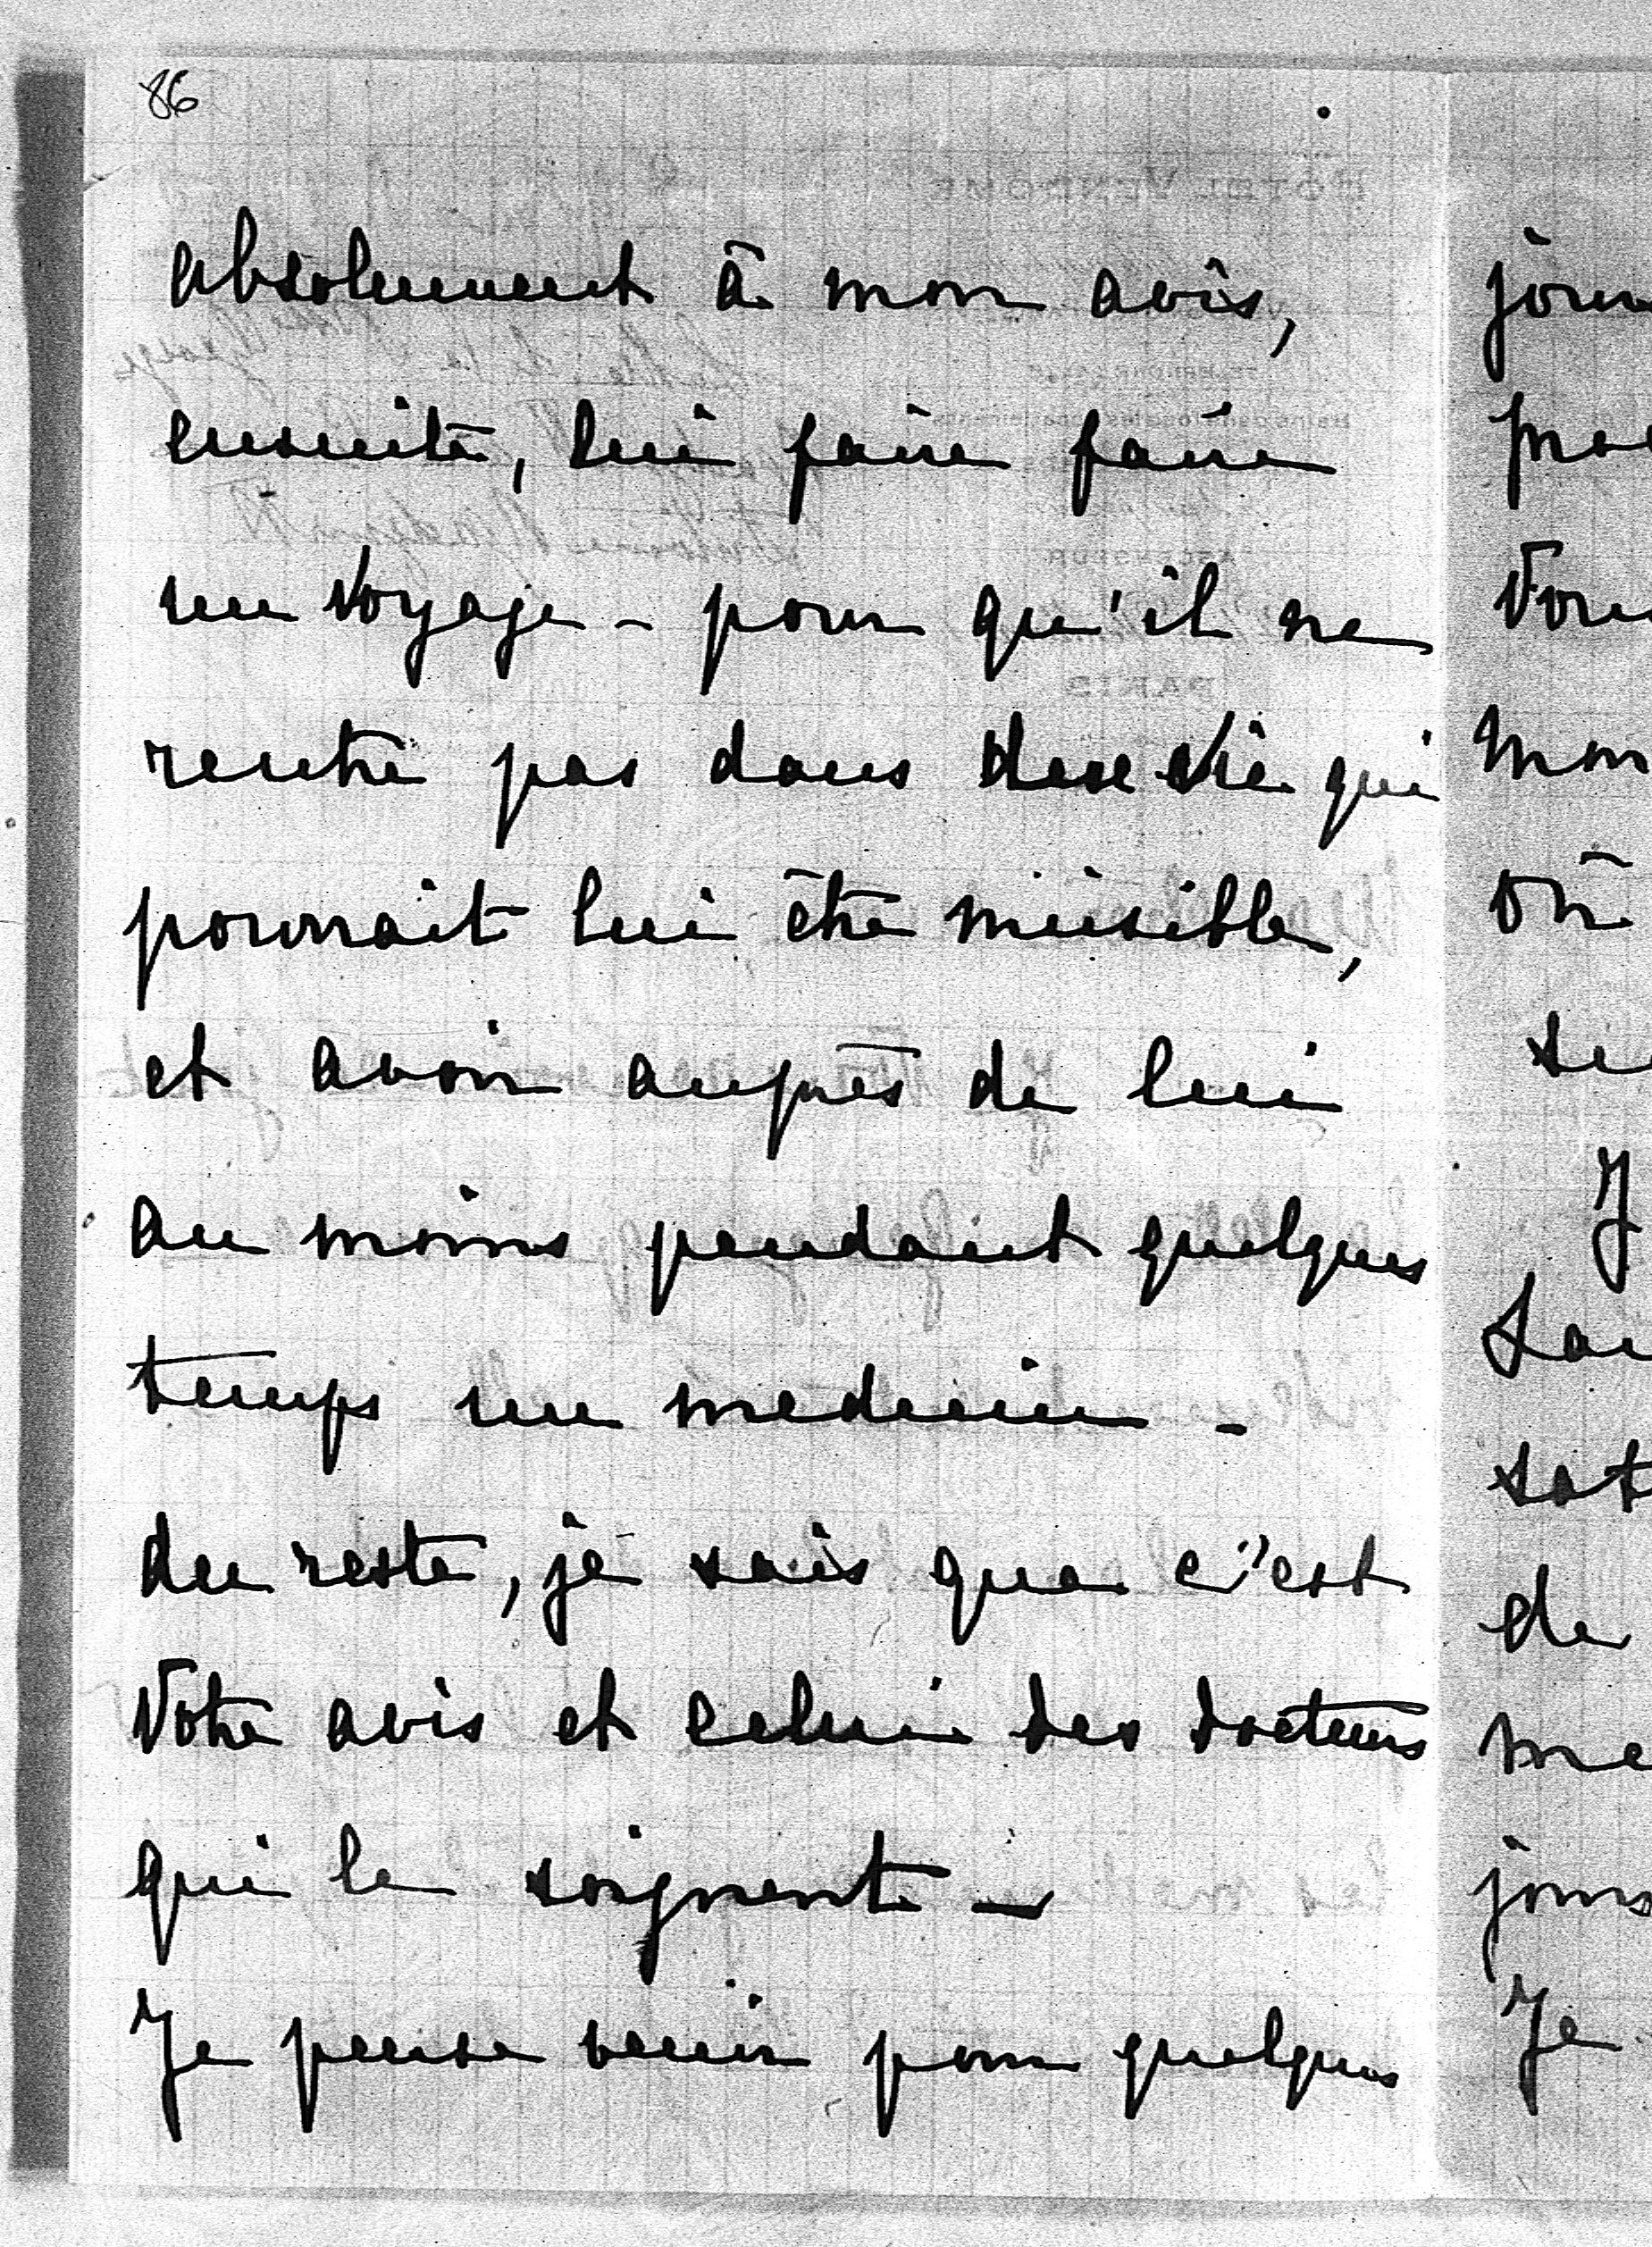 86
absolument à mon avis,
ensuite, lui faire faire
un voyage - pour qu'il ne
rentre pas dans vie qui
pourrait lui être nuisible,
et avoir auprès de lui
au moins pendant quelques
temps un medecin -
du reste, je sais que c'est
Votre avis et celui des docteurs
qui le soignent -
Je pense venir pour quelques
de
me
jours
Je